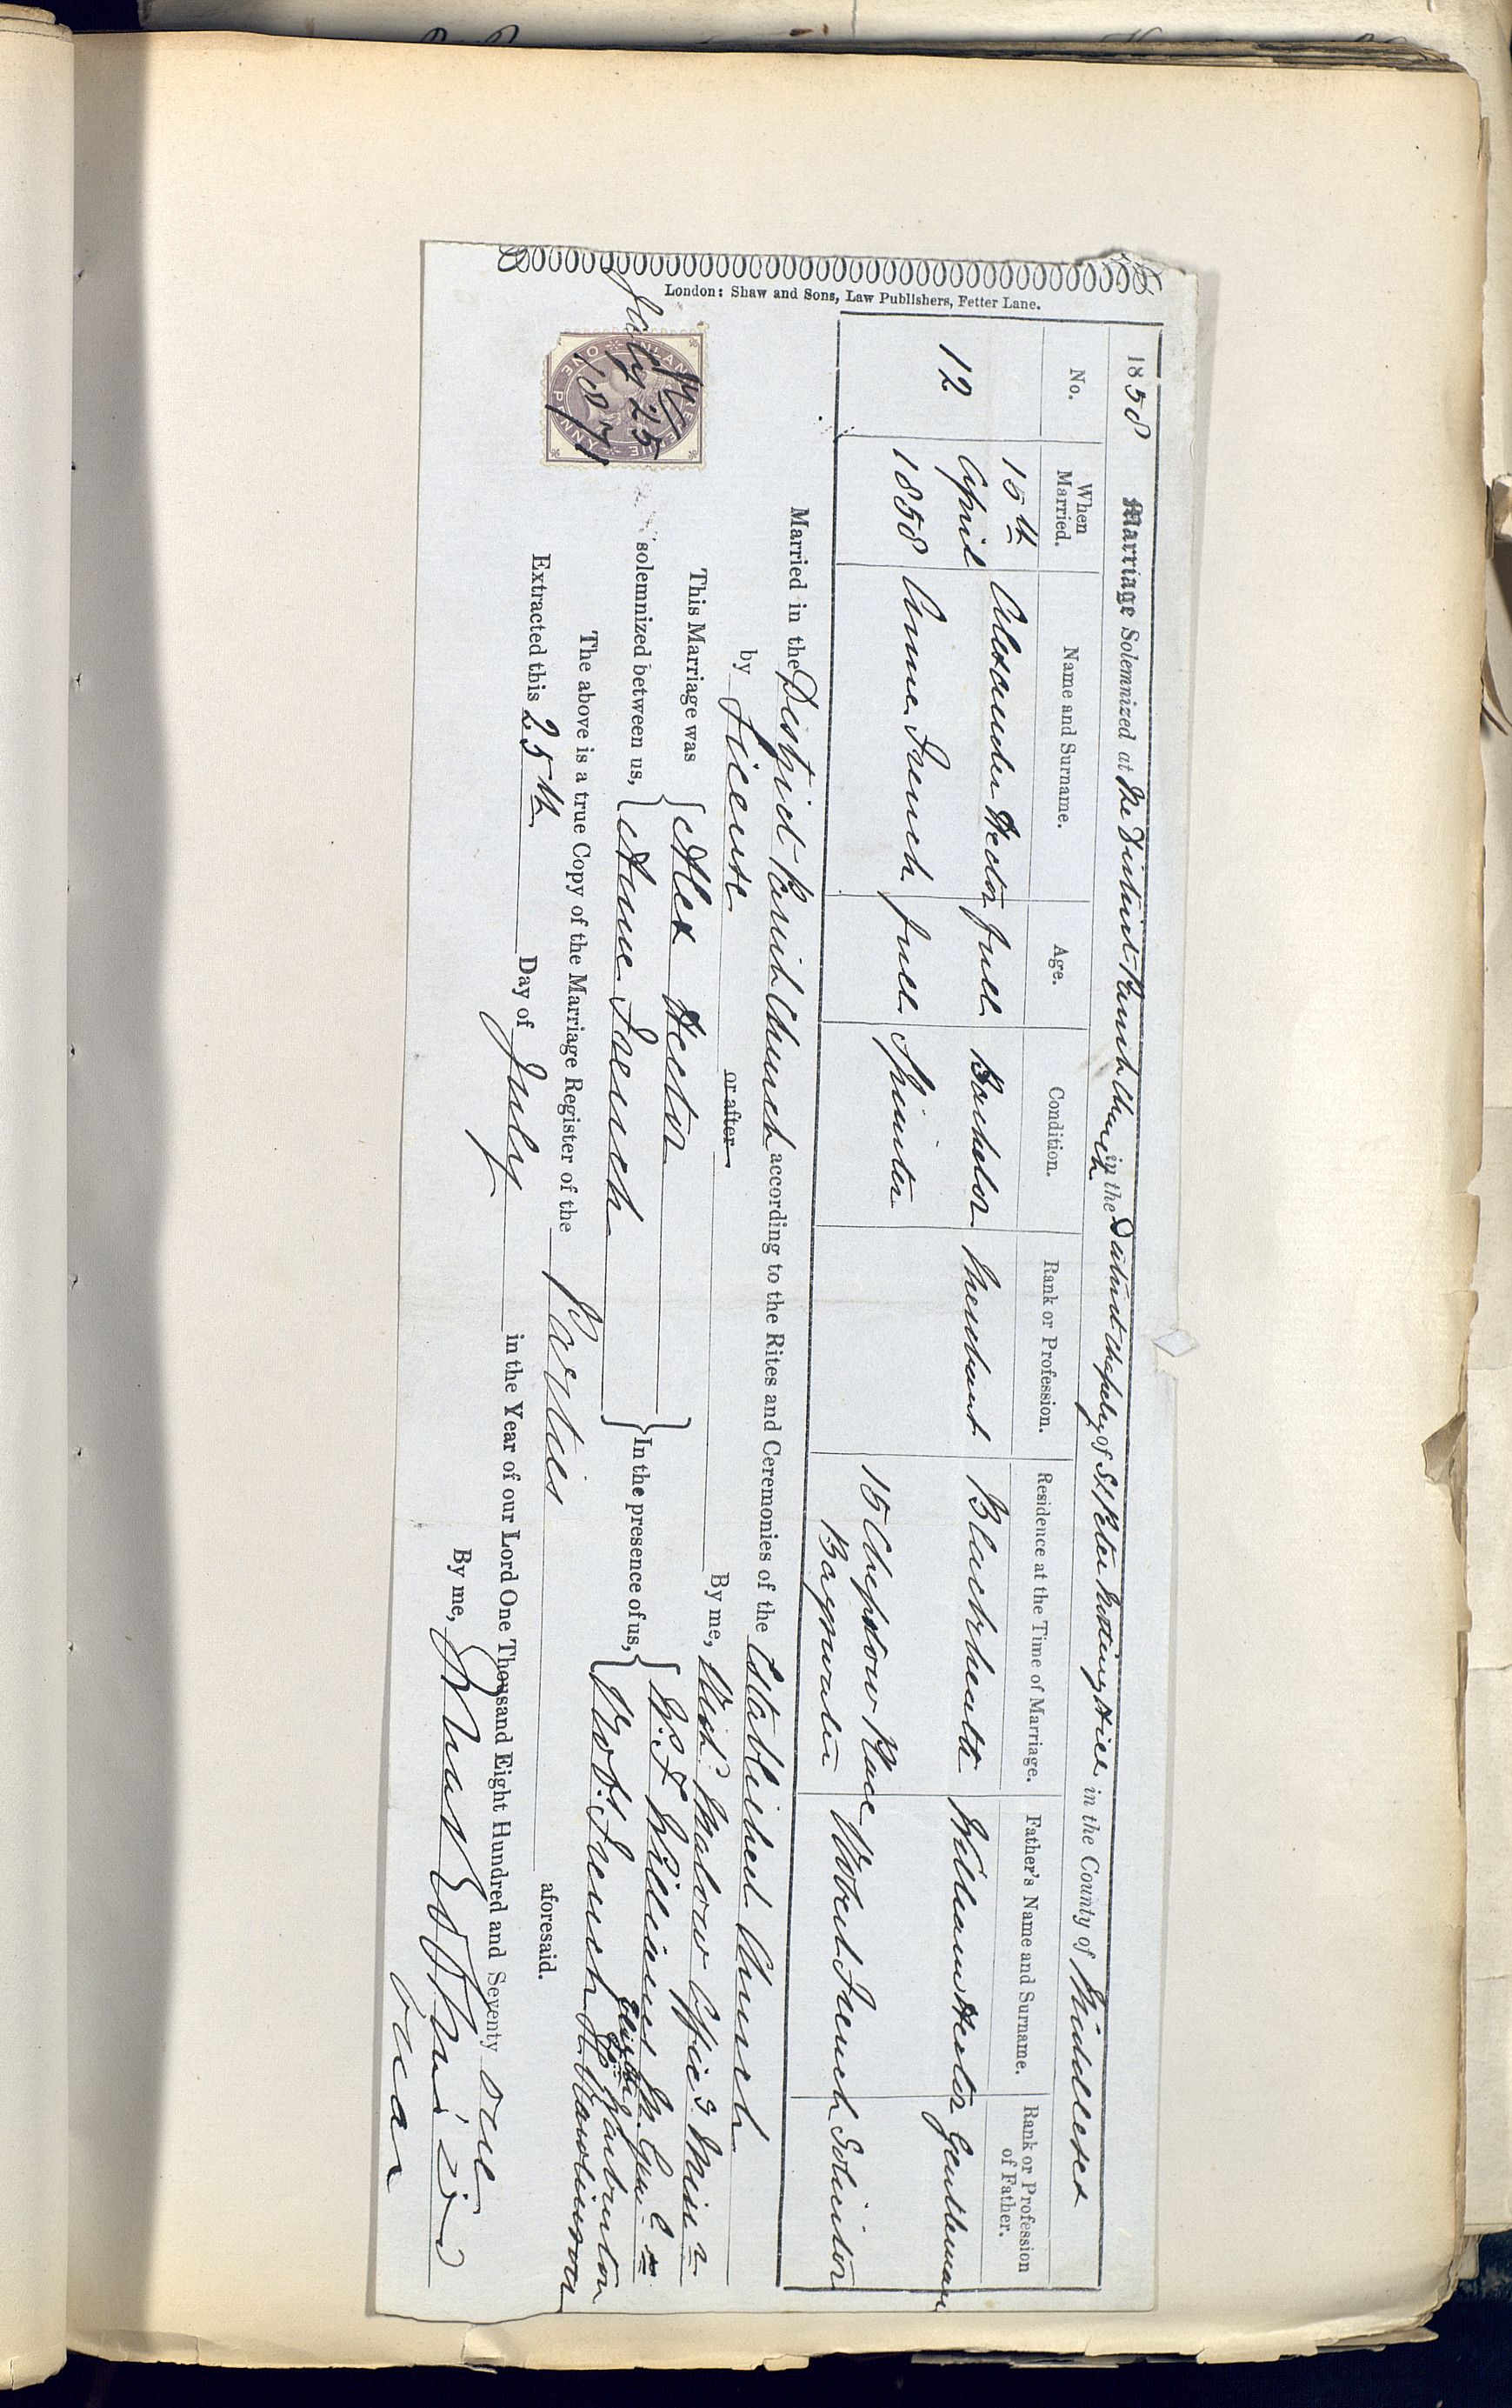 London: Shaw and Sons, Law Publishers, Fetter Lane.
1858 Marriage Solemnized at The District Parish Church in the District Chapelry of St Peter Notting Hill in the County of Middlesex
No. When Married. Name and Surname. Age. Condition. Rank or Profession. Residence at the Time of Marriage. Father's Name and Surname. Rank or Profession of Father.
12 15th April 1858 Alexander Hector full Bachelor Merchant Blackheath William Hector Gentleman
Anne French full Spinster 15 Chepstow Place Bayswater Robert French Solicitor
Married in the District Parish Church according to the Rites and Ceremonies of the Established Church
by License or after By me,
This Marriage was solemnized between us,
Alex Hector
Anne French
In the presence of us,
W. F. Williams M. Genl
Robt. French H. Rawlinson
The above is a true Copy of the Marriage Register of the Parties aforesaid.
Extracted this 25th Day of July in the Year of our Lord One Thousand Eight Hundred and Seventy one
By me,
INLAND REVENUE
ONE PENNY
July 25
1871